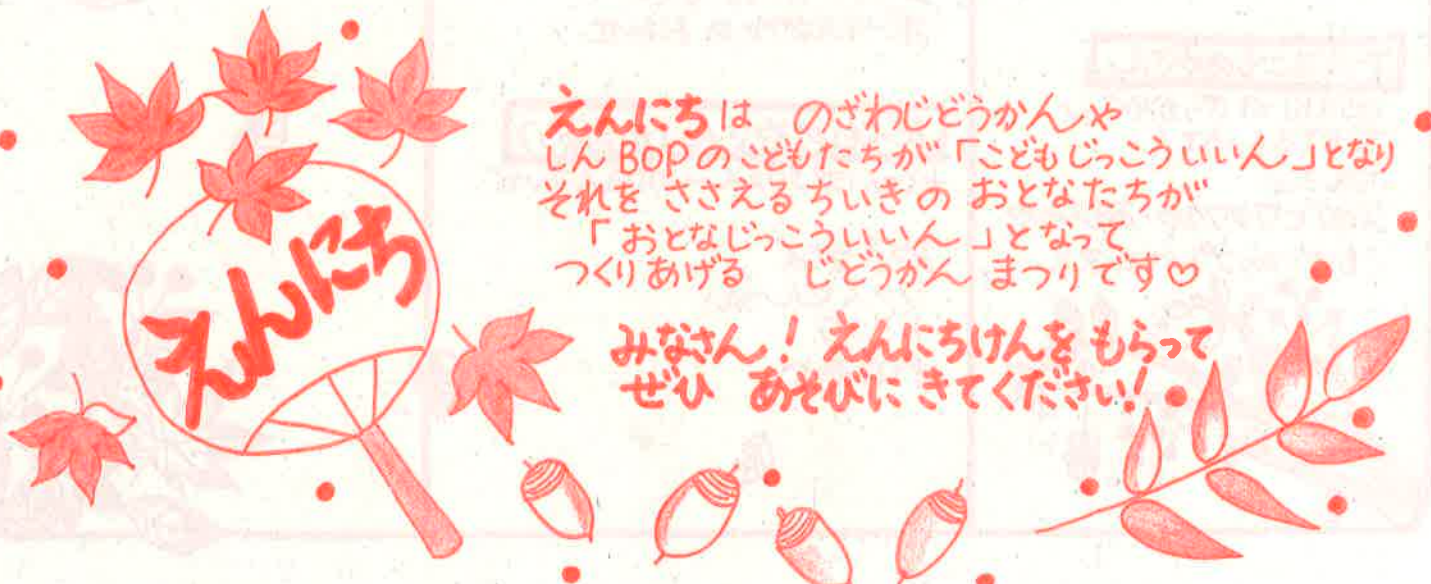 えんにち
えんにちは のざわじどうかんや
しんBOPのこどもたちが「こどもじっこういいん」となり
それを ささえるちいきの おとなたちが
「おとなじっこういいん」となって
つくりあげる じどうかん まつりです♡
みなさん！ えんにちけんを もらって
ぜひ あそびに きてください！